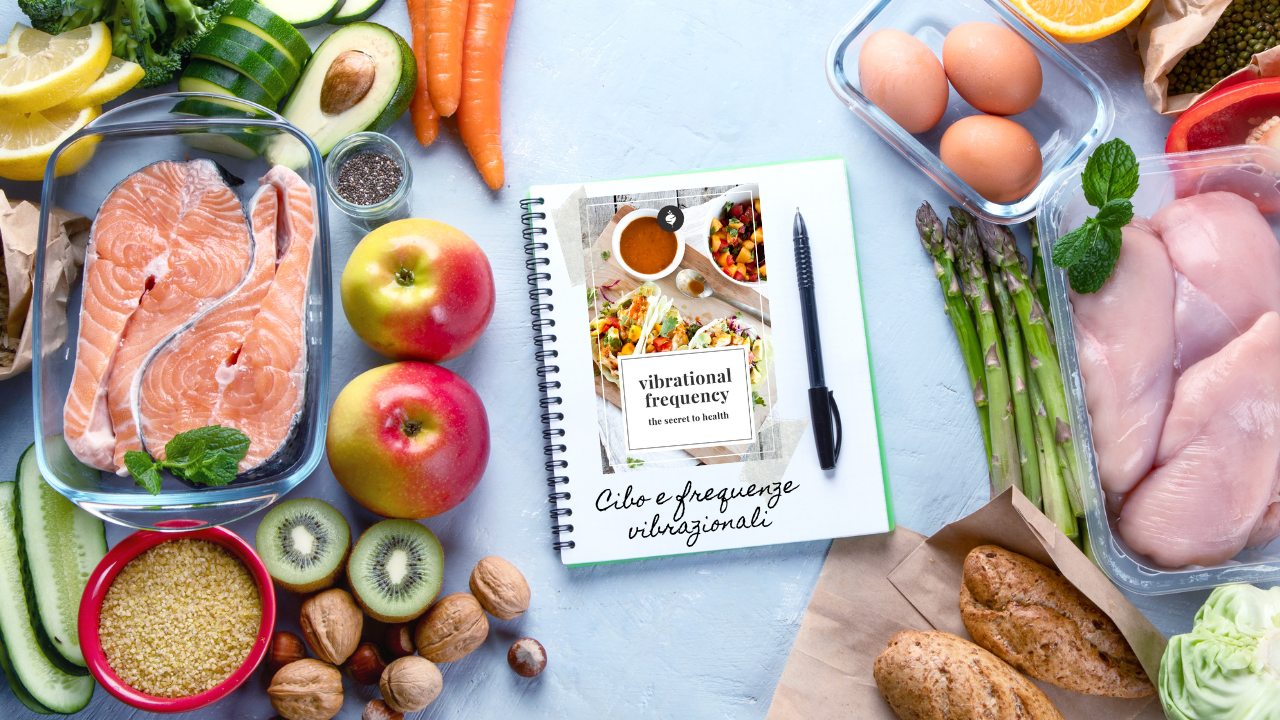 vibrational
frequency
the secret to health
Cibo e frequenze
vibrazionali